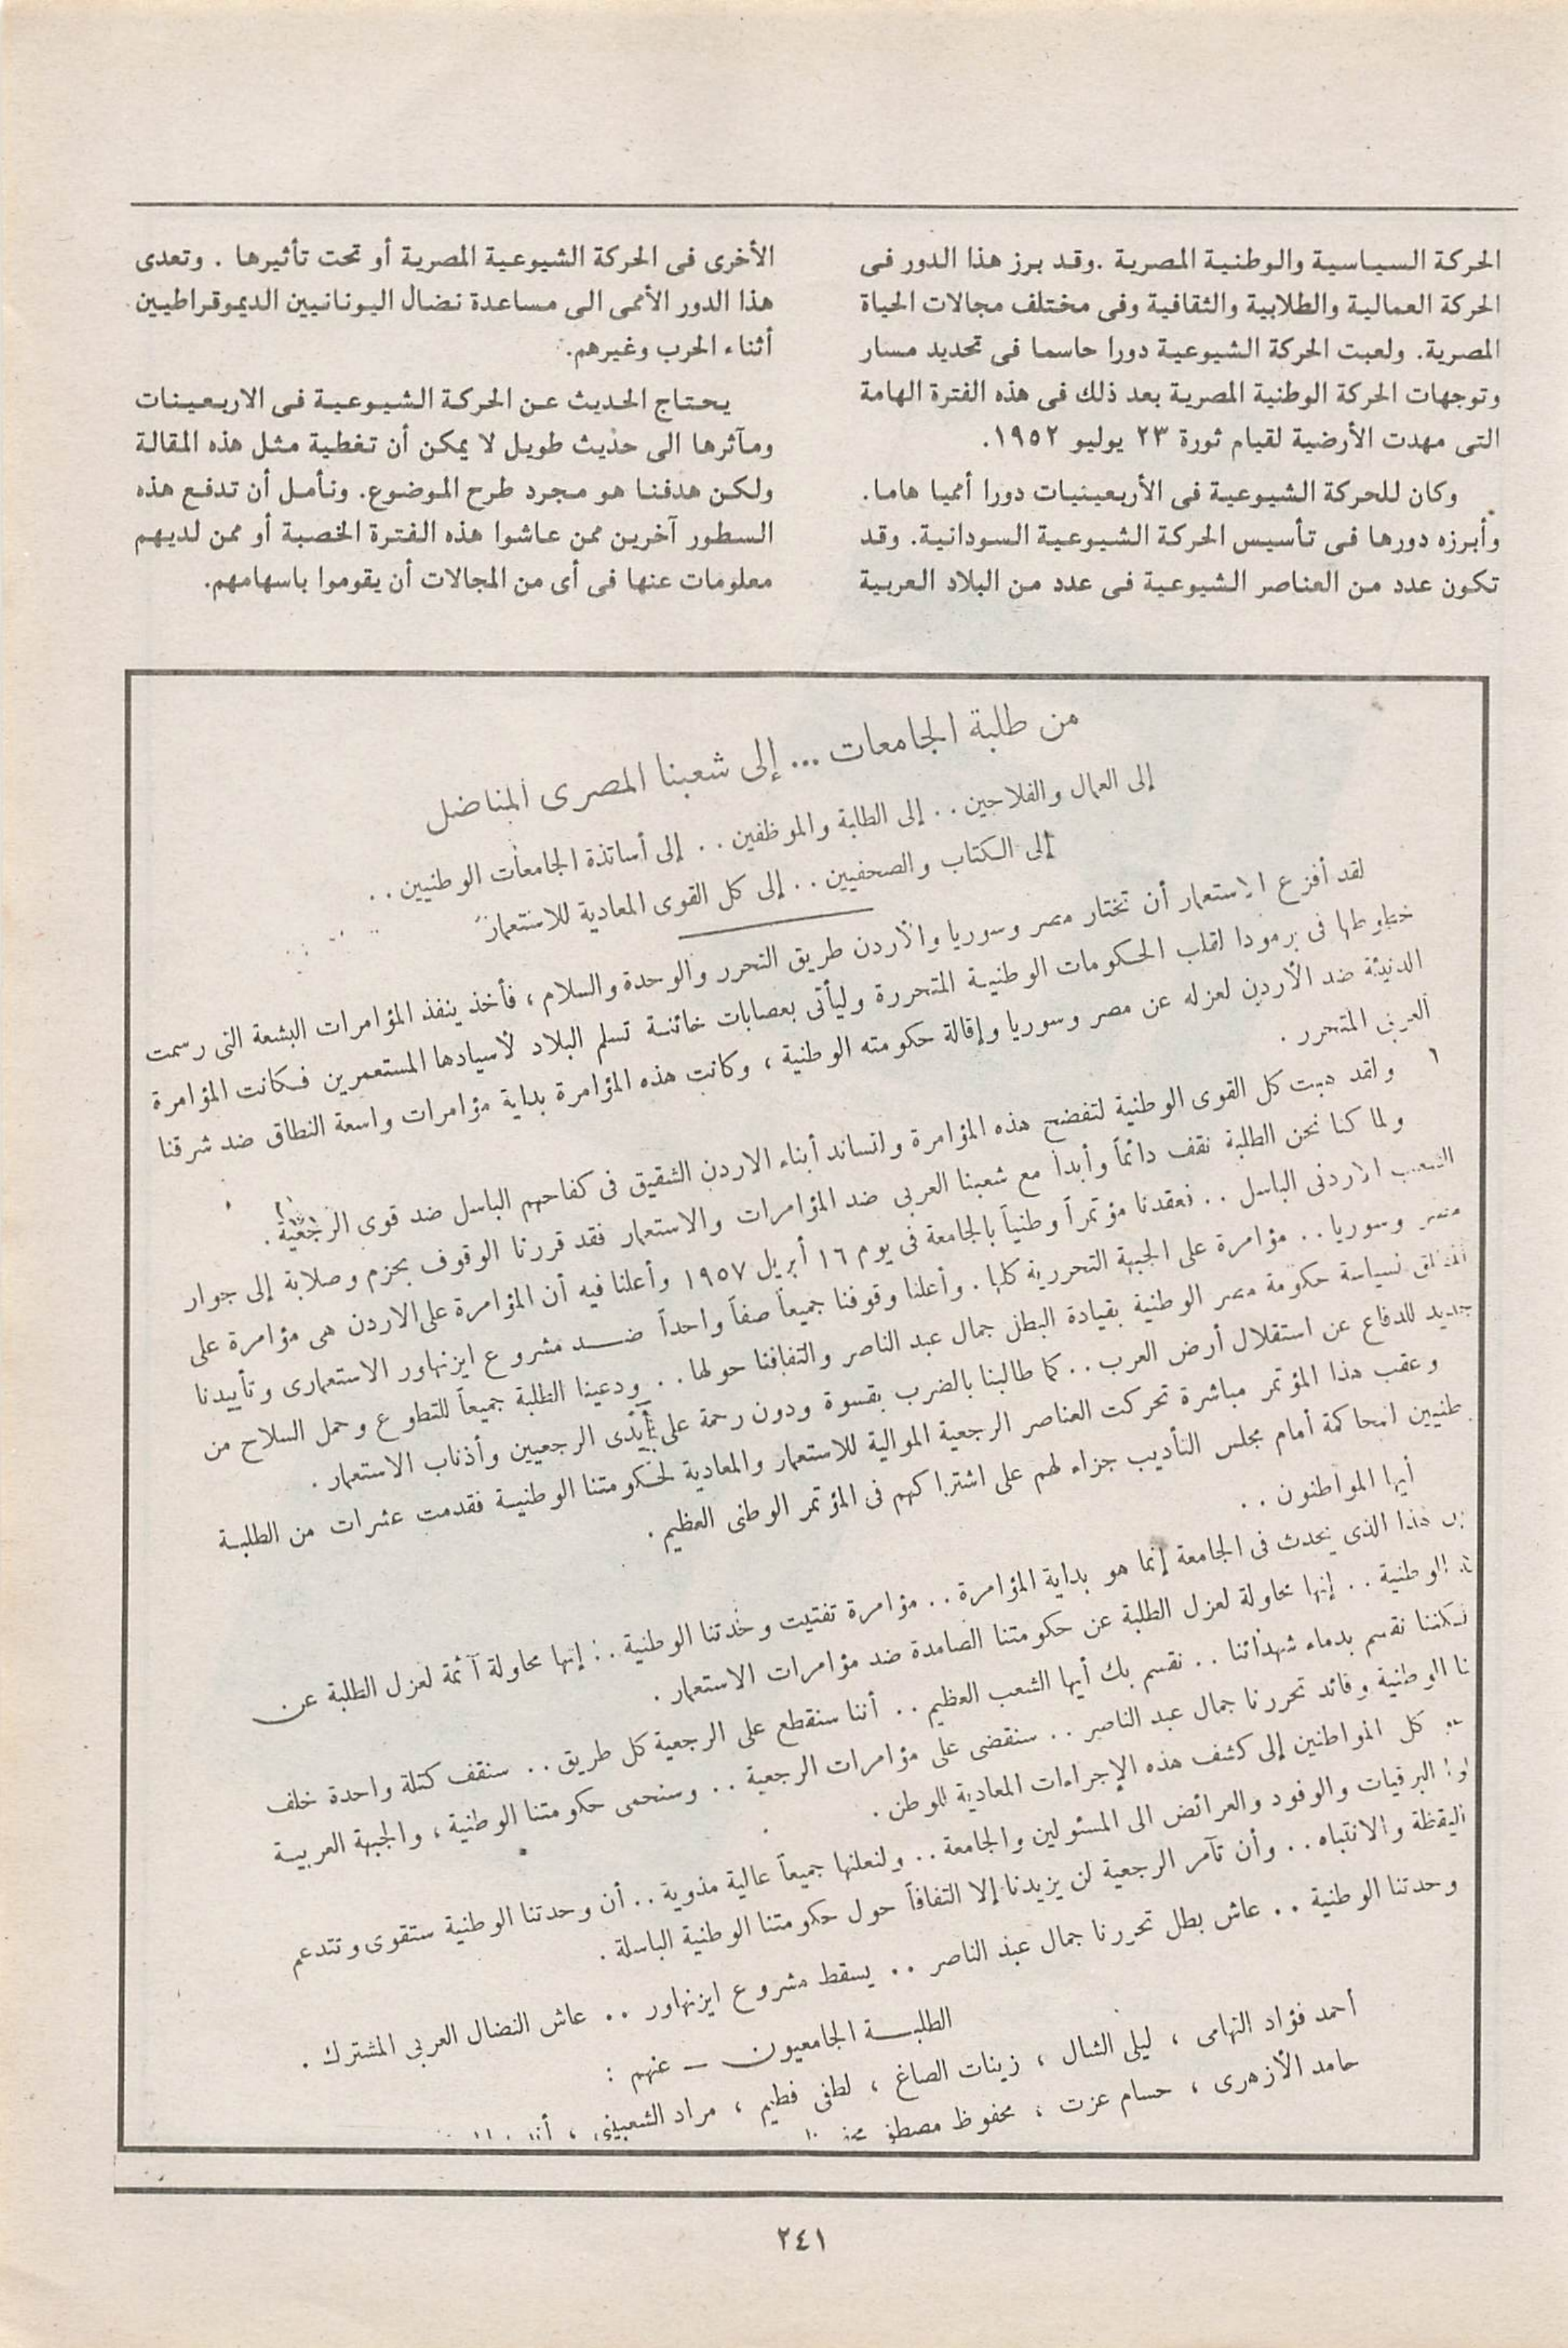 الحركة السياسية والوطنية المصرية .وقد برز هذا الدور فى
الحركة العمالية والطلابية والثقافية وفى مختلف مجالات الحياة
المصرية. ولعبت الحركة الشيوعية دورا حاسما فى تحديد مسار
وتوجهات الحركة الوطنية المصرية بعد ذلك فى هذه الفترة الهامة
التى مهدت الأرضية لقيام ثورة ٢٣ يوليو ١٩٥٢.
وكان للحركة الشيوعية فى الأربعينيات دورا أمميا هاما.
وأبرزه دورها فى تأسيس الحركة الشيوعية السودانية. وقد
تكون عدد من العناصر الشيوعية فى عدد من البلاد العربية
الأخرى فى الحركة الشيوعية المصرية أو تحت تأثيرها . وتعدى
هذا الدور الأممى الى مساعدة نضال اليونانيين الديموقراطيين
أثناء الحرب وغيرهم.
يحتاج الحديث عن الحركة الشيوعية فى الاربعينات
ومآثرها الى حديث طويل لا يمكن أن تغطية مثل هذه المقالة
ولكن هدفنا هو مجرد طرح الموضوع. ونأمل أن تدفع هذه
السطور آخرين ممن عاشوا هذه الفترة الخصبة أو ممن لديهم
معلومات عنها فى أى من المجالات أن يقوموا باسهامهم.
من طلبة الجامعات ... إلى شعبنا المصرى المناضل
إلى العمال والفلاحين .. إلى الطلبة والموظفين .. إلى أساتذة الجامعات الوطنيين ..
إلى الكتاب والصحفيين .. إلى كل القوى المعادية للاستعمار
لقد أفزع الاستعمار أن تختار مصر وسوريا والأردن طريق التحرر والوحدة والسلام ، فأخذ ينفذ المؤامرات البشعة التى رسمت
خطوطها فى برمودا لقلب الحكومات الوطنية المتحررة وليأتى بعصابات خائنة تسلم البلاد لأسيادها المستعمرين فكانت المؤامرة
الدنيئة ضد الأردن لعزله عن مصر وسوريا وإقالة حكومته الوطنية ، وكانت هذه المؤامرة بداية مؤامرات واسعة النطاق ضد شرقنا
العربى المتحرر .
ولقد هبت كل القوى الوطنية لتفضح هذه المؤامرة ولتساند أبناء الاردن الشقيق فى كفاحهم الباسل ضد قوى الرجعية .
ولما كنا نحن الطلبة نقف دائماً وأبداً مع شعبنا العربى ضد المؤامرات والاستعمار فقد قررنا الوقوف بحزم وصلابة إلى جوار
الشعب الاردنى الباسل .. فعقدنا مؤتمراً وطنياً بالجامعة فى يوم ١٦ أبريل ١٩٥٧ وأعلنا فيه أن المؤامرة على الاردن هى مؤامرة على
مصر وسوريا .. مؤامرة على الجبهة التحررية كلها . وأعلنا وقوفنا جميعاً صفاً واحداً ضد مشروع ايزنهاور الاستعمارى وتأييدنا
المطلق لسياسة حكومة مصر الوطنية بقيادة البطل جمال عبد الناصر والتفافنا حولها .. ودعينا الطلبة جميعاً للتطوع وحمل السلاح من
جديد للدفاع عن استقلال أرض العرب .. كما طالبنا بالضرب بقسوة ودون رحمة على أيدى الرجعيين وأذناب الاستعمار .
وعقب هذا المؤتمر مباشرة تحركت العناصر الرجعية الموالية للاستعمار والمعادية لحكومتنا الوطنية فقدمت عشرات من الطلبة
طنيين لمحاكمة أمام مجلس التأديب جزاء لهم على اشتراكهم فى المؤتمر الوطنى العظيم .
أيها المواطنون ..
هذا الذى يحدث فى الجامعة إنما هو بداية المؤامرة .. مؤامرة تفتيت وحدتنا الوطنية .. إنها محاولة آثمة لعزل الطلبة عن
الوطنية .. إنها محاولة لعزل الطلبة عن حكومتنا الصامدة ضد مؤامرات الاستعمار .
لكننا نقسم بدماء شهدائنا .. نقسم بك أيها الشعب العظيم .. أننا سنقطع على الرجعية كل طريق .. سنقف كتلة واحدة خلف
نا الوطنية وقائد تحررنا جمال عبد الناصر .. سنقضى على مؤامرات الرجعية .. وسنحمى حكومتنا الوطنية ، والجبهة العربية
كل المواطنين إلى كشف هذه الإجراءات المعادية للوطن .
لوا البرقيات والوفود والعرائض الى المسئولين والجامعة .. ولنعلنها جميعاً عالية مدوية .. أن وحدتنا الوطنية ستقوى وتتدعم
اليقظة والانتباه .. وأن تآمر الرجعية لن يزيدنا إلا التفافاً حول حكومتنا الوطنية الباسلة .
وحدتنا الوطنية .. عاش بطل تحررنا جمال عبد الناصر .. يسقط مشروع ايزنهاور .. عاش النضال العربى المشترك .
الطلبة الجامعيون – عنهم :
أحمد فؤاد التهامى ، ليلى الشال ، زينات الصاغ ، لطفى فطيم ، مراد الشعبينى ،
حامد الأزهرى ، حسام عزت ، محفوظ مصطفى
٢٤١